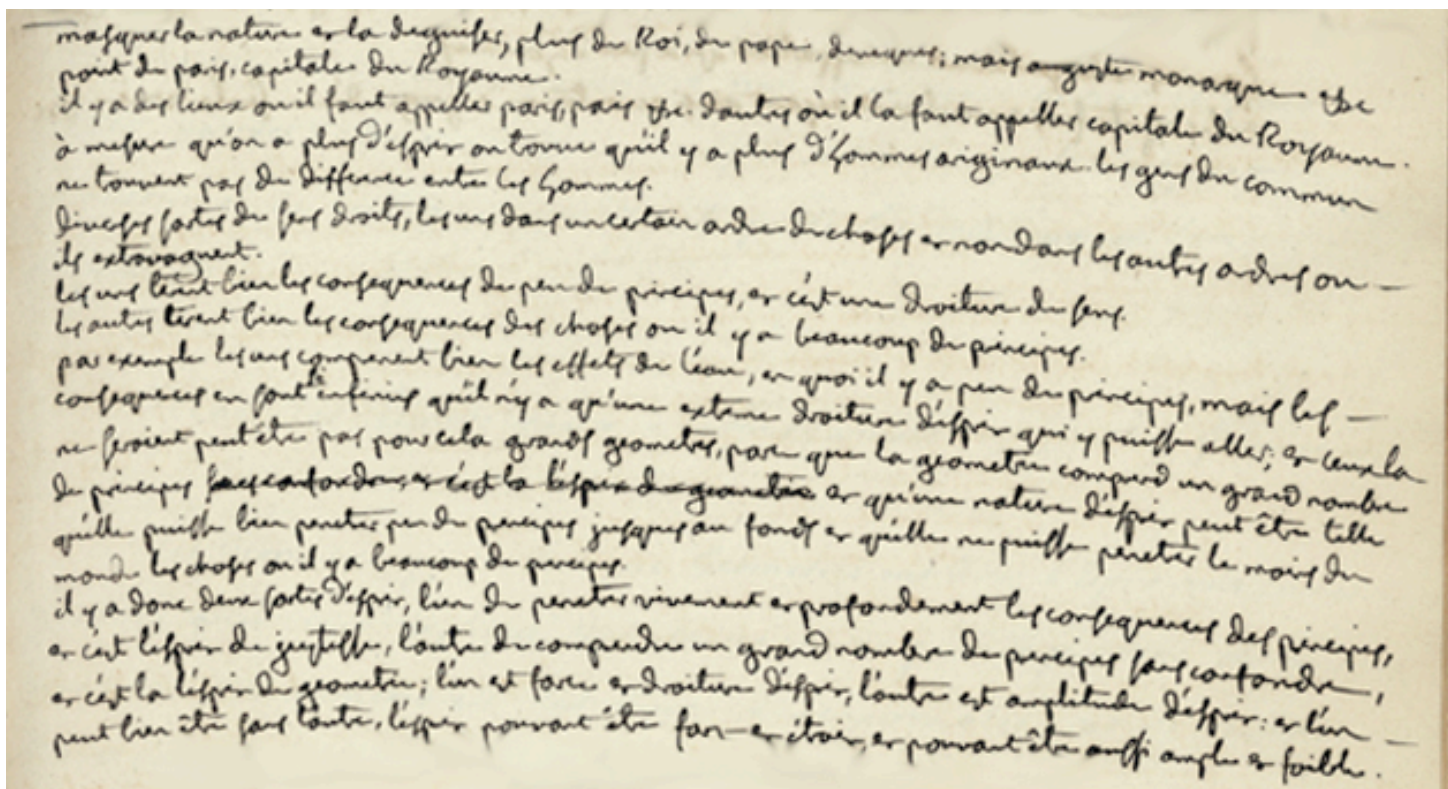 masquer la nature et la deguiser, plus de Roi, de pape, deveques; mais auguste monarque &c
point de paris, capitale du Royaume.
il y a des lieux ou il faut appeller paris, paris &c. dautres où il la faut appeller capitale du Royaume.
à mesure qu'on a plus d'esprit on trouve qu'il y a plus d'hommes originaux. les gens du commun
ne trouvent pas de difference entre les hommes.
diverses sortes de sens droits, les uns dans un certain ordre de choses et non dans les autres ordres ou —
ils extravaguent.
les uns tirent bien les consequences de peu de principes, et c'est une droiture de sens.
les autres tirent bien les consequences des choses ou il y a beaucoup de principes.
par exemple les uns comprenent bien les effets de l'eau, en quoi il y a peu de principes, mais les —
consequences en sont si infinies qu'il n'y a qu'une extreme droiture d'esprit qui y puisse aller; et ceux la
ne seroient peut être pas pour cela grands geometres, parce que la geometrie comprend un grand nombre
de principes sans confondre, et c'est la l'esprit de geometrie et qu'une nature d'esprit peut être telle
qu'elle puisse bien penetrer peu de principes jusques au fonds et qu'elle ne puisse penetrer le moins du
monde les choses ou il y a beaucoup de principes.
il y a donc deux sortes d'esprit, l'un de penetrer vivement et profondement les consequences des principes,
et c'est l'esprit de justesse, l'autre de comprendre un grand nombre de principes sans confondre,
et c'est la l'esprit de geometrie; l'un est force et droiture d'esprit, l'autre est amplitude d'esprit: et l'un —
peut bien être sans l'autre, l'esprit pouvant être fort et étroit, et pouvant être aussi ample et foible.